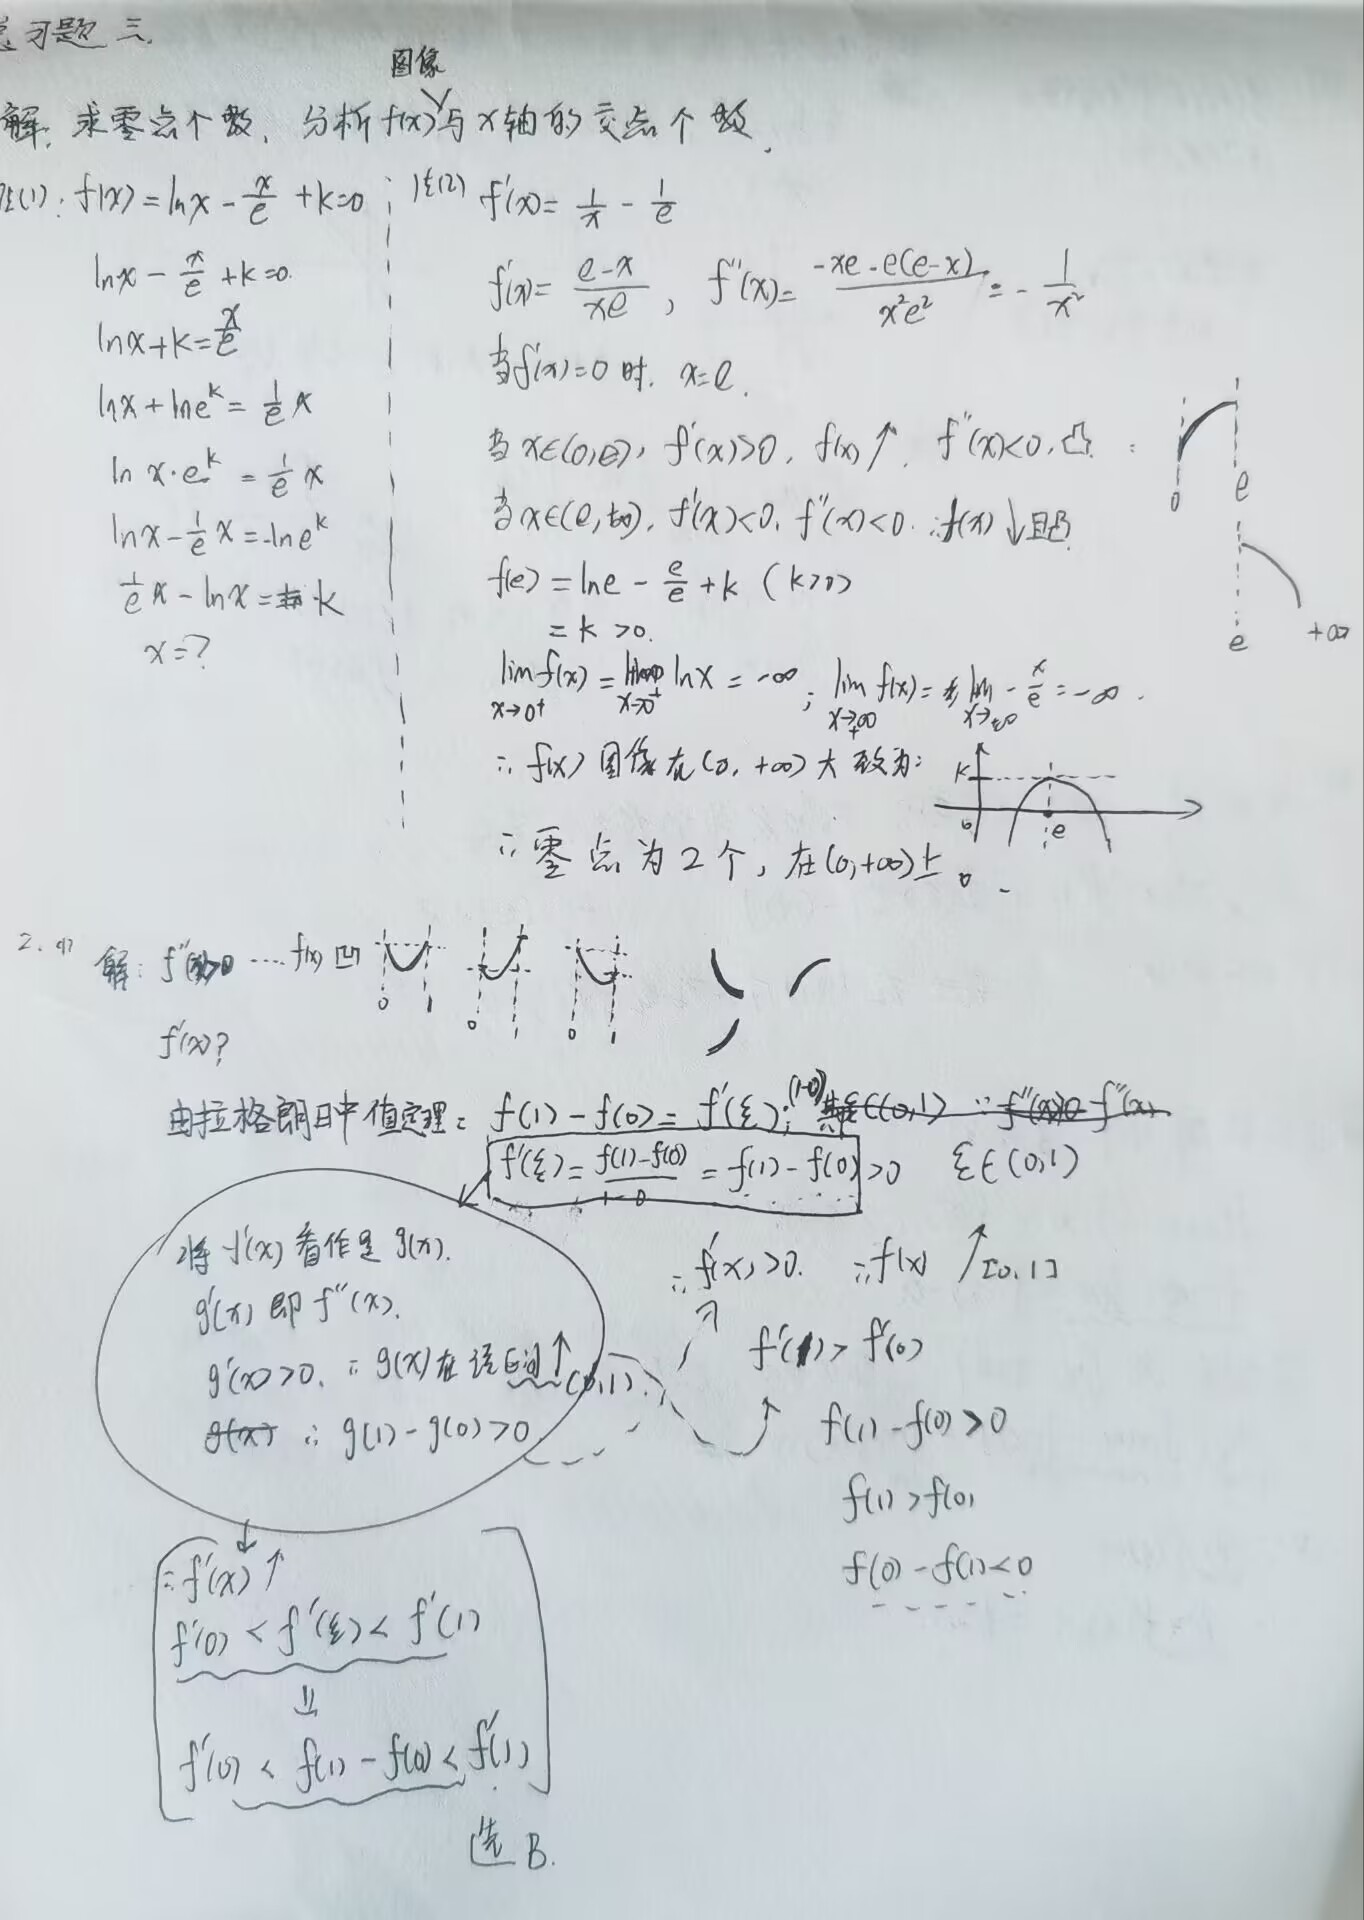 总习题三.
图像
解: 求零点个数, 分析f(x)与x轴的交点个数.
法(1): f(x)=lnx-x/e+k=0
lnx-x/e+k=0.
lnx+k=x/e
lnx+lne^k=1/e x
ln x·e^k=1/e x
lnx-1/e x=-lne^k
1/e x-lnx=k
x=?
法(2) f'(x)=1/x-1/e
f'(x)=(e-x)/(xe), f''(x)=(-xe-e(e-x))/(x²e²)=-1/x²
当f'(x)=0时. x=e.
当x∈(0,e), f'(x)>0, f(x)↑. f''(x)<0, 凸.
0 e
当x∈(e,+∞), f'(x)<0. f''(x)<0. ∴f(x)↓且凸.
e +∞
f(e)=lne-e/e+k (k>0)
=k>0.
lim x→0+ f(x)=lim x→0+ lnx=-∞; lim x→+∞ f(x)=lim x→+∞ -x/e=-∞.
∴f(x)图像在(0,+∞)大致为:
k 0 e
∴零点为2个, 在(0,+∞)上.
2.(1) 解: f''(x)>0 ....f(x)凹
0 1 0 0 1
f'(x)?
由拉格朗日中值定理: f(1)-f(0)=f'(ξ)·(1-0) 其ξ∈(0,1) ∵f''(x)>0 f''(x)
f'(ξ)=(f(1)-f(0))/(1-0)=f(1)-f(0)>0 ξ∈(0,1)
将f'(x)看作是g(x).
g'(x)即f''(x).
g'(x)>0. ∴g(x)在该区间↑(0,1).
g(x) ∴g(1)-g(0)>0
∴f'(x)>0. ∴f(x)↗[0,1]
f'(1)>f'(0)
f(1)-f(0)>0
f(1)>f(0)
f(0)-f(1)<0
∴f'(x)↑
f'(0)<f'(ξ)<f'(1)
⇓
f'(0)<f(1)-f(0)<f'(1)
选B.